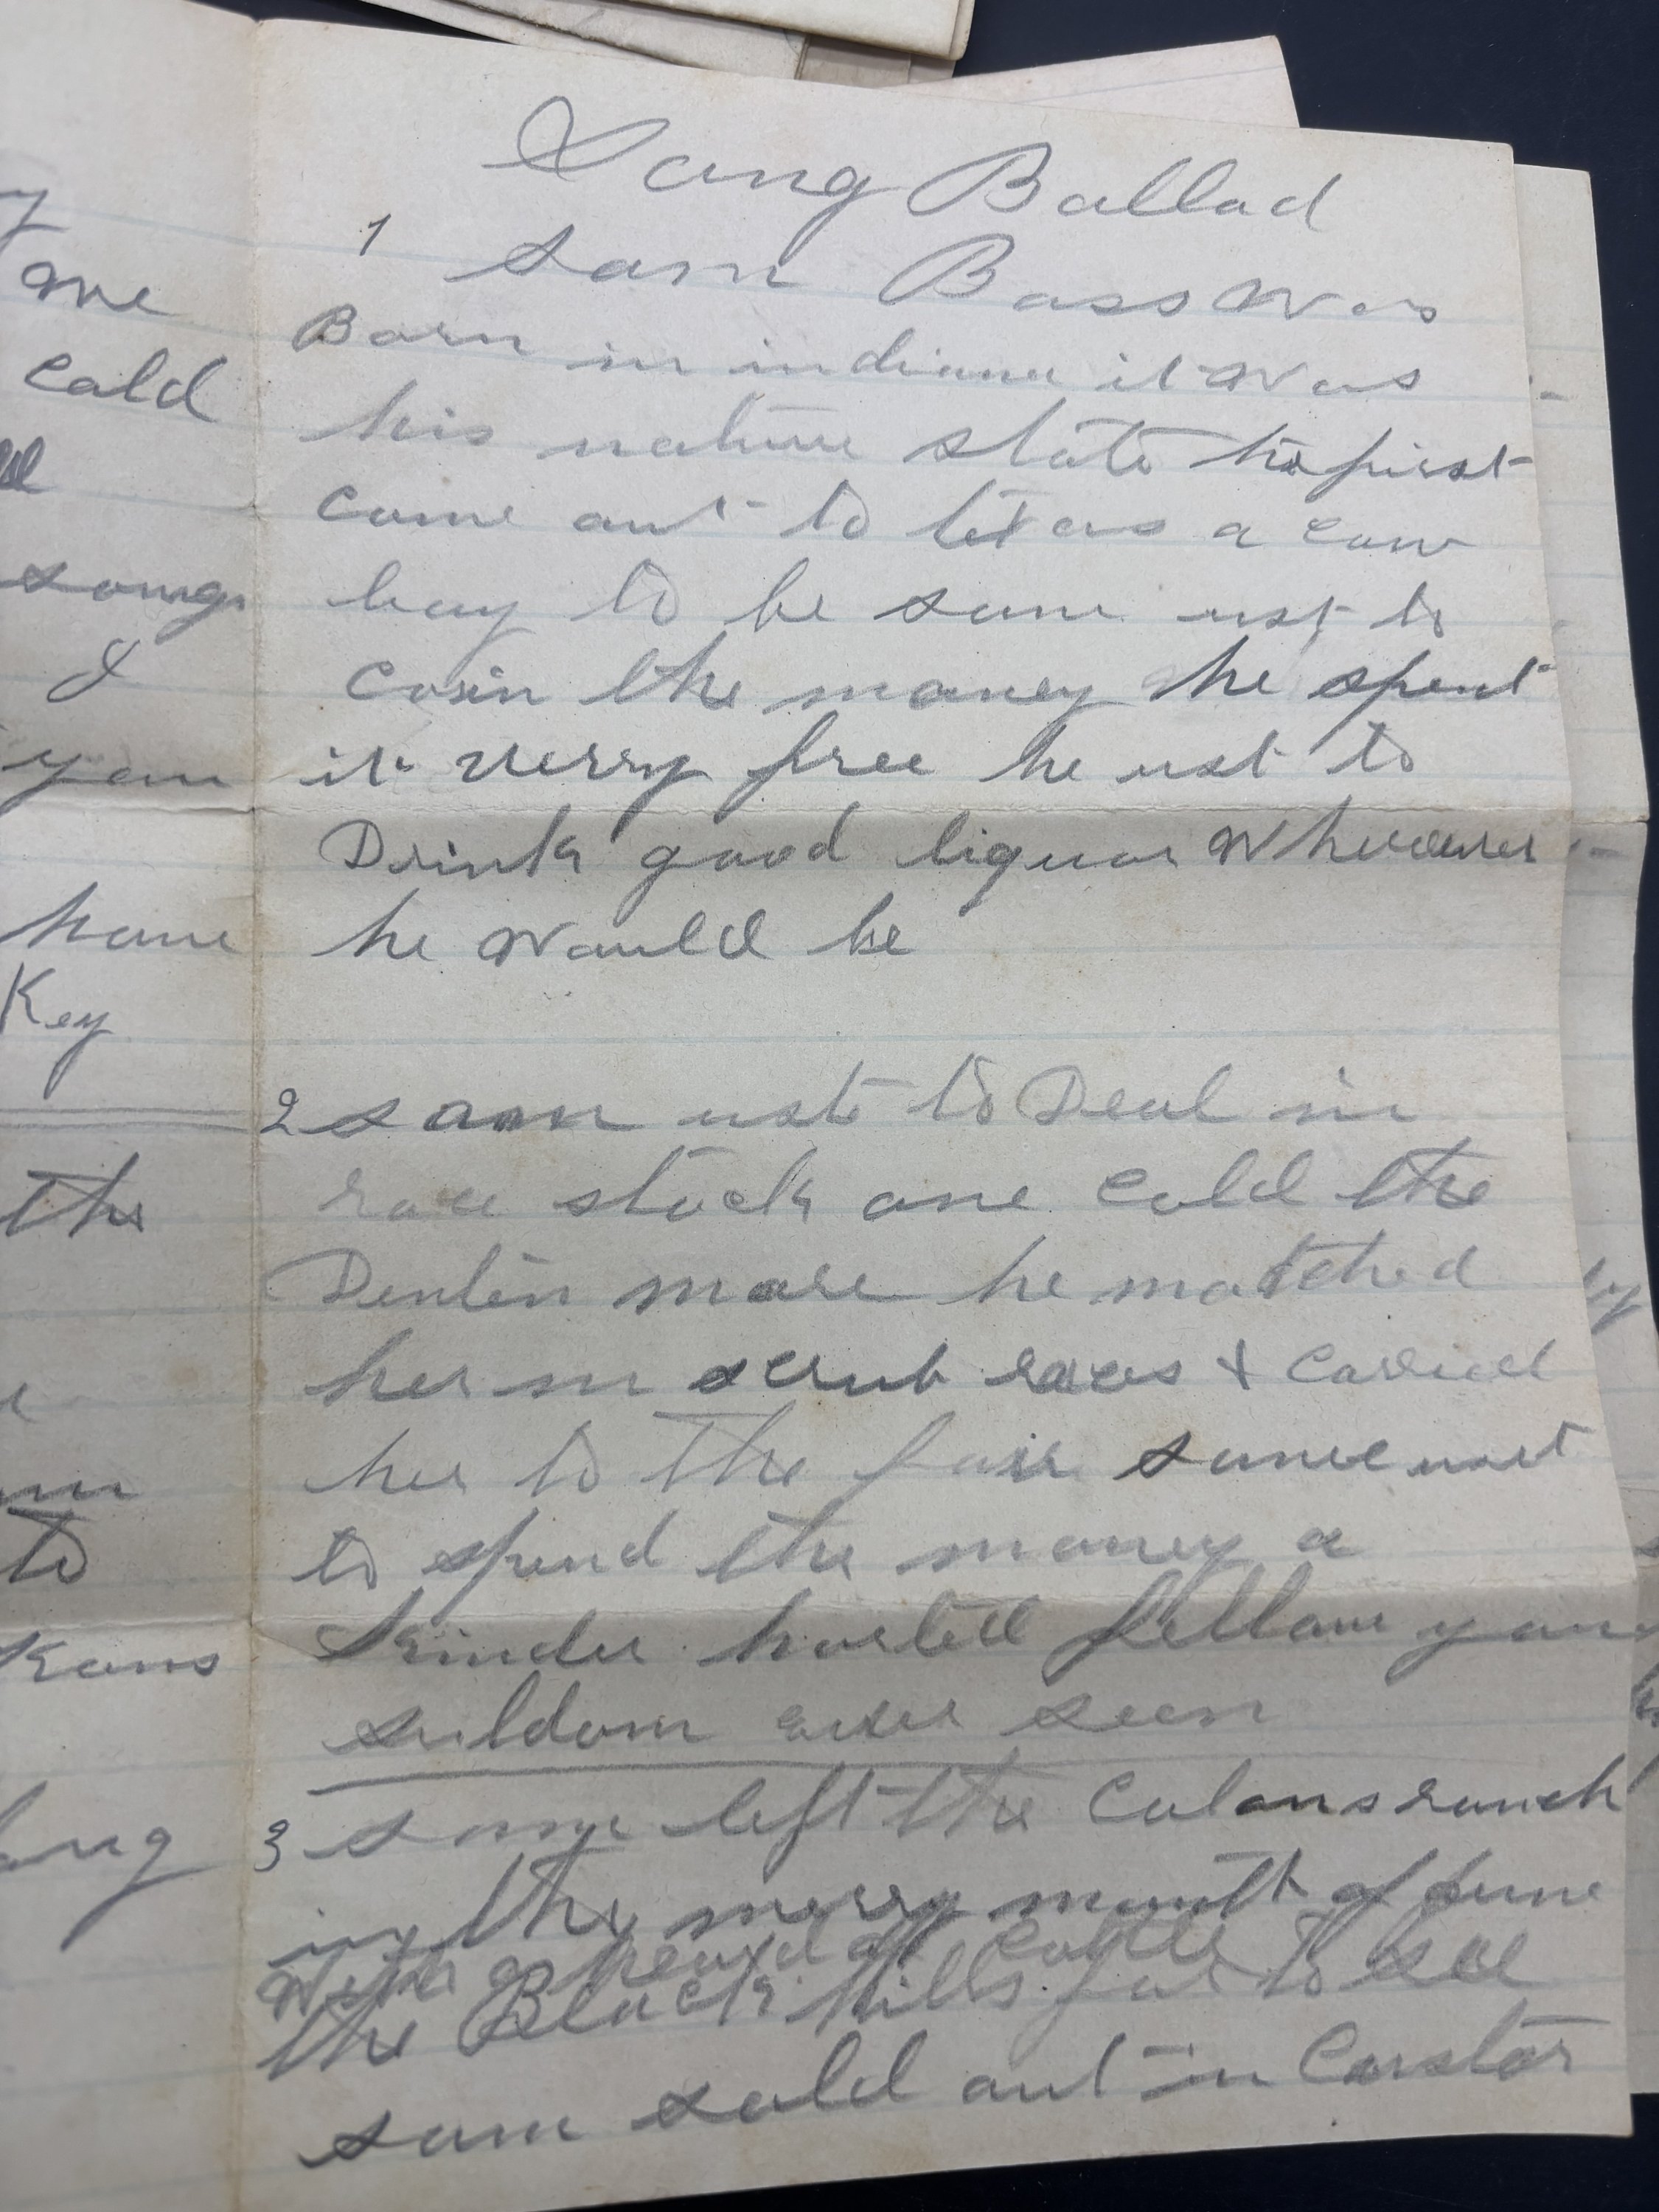 Song Ballad
1 Sam Bass was
Born in indiana it was
his native state he first
come out to texas a cow
boy to be sam ust to
coin the money he spent
it verry free he ust to
Drink good liquor Wherever
he Would be
2 sam ust to Deal in
race stock one cald the
Denton mare he matched
her in scrub races & Carried
her to the fair sam ust
to spend the money a
kinder harted fellow you
suldom ever seen
3 sam left the Colons ranch
in the merry month of June
With a heard of Cattle
the Black Hills for to see
sam sold out in Custor
me
cald
song
I
you
have
Key
the
to
Kans